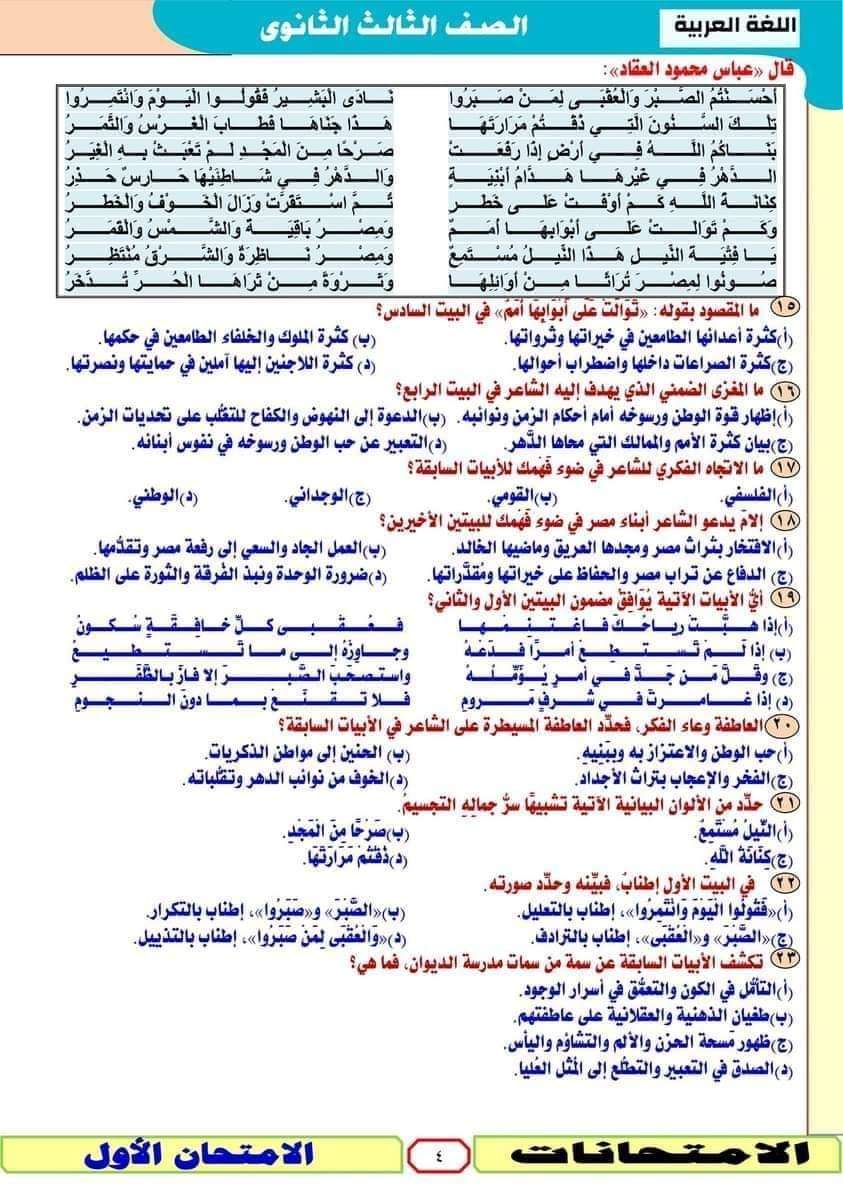 اللغة العربية
الصف الثالث الثانوى
قال «عباس محمود العقاد»:
أَحْسَنْتُمُ الصَّبْرَ وَالْعُقْبَى لِمَنْ صَبَرُوا نَادَى الْبَشِيرُ فَقُولُوا الْيَوْمَ وَائْتَمِرُوا
تِلْكَ السِّنُونَ الَّتِي ذُقْتُمْ مَرَارَتَهَا هَذَا جَنَاهَا فَطَابَ الْغَرْسُ وَالثَّمَرُ
بَنَاكُمُ اللَّهُ فِي أَرْضٍ إِذَا رَفَعَتْ صَرْحًا مِنَ الْمَجْدِ لَمْ تَعْبَثْ بِهِ الْغِيَرُ
الدَّهْرُ فِي غَيْرِهَا هَدَّامُ أَبْنِيَةٍ وَالدَّهْرُ فِي شَاطِئَيْهَا حَارِسٌ حَذِرُ
كِنَانَةَ اللَّهِ كَمْ أَوْفَتْ عَلَى خَطَرٍ ثُمَّ اسْتَقَرَّتْ وَزَالَ الْخَوْفُ وَالْخَطَرُ
وَكَمْ تَوَالَتْ عَلَى أَبْوَابِهَا أُمَمٌ وَمِصْرُ بَاقِيَةٌ وَالشَّمْسُ وَالْقَمَرُ
يَا فِتْيَةَ النِّيلِ هَذَا النِّيلُ مُسْتَمِعٌ وَمِصْرُ نَاظِرَةٌ وَالشَّرْقُ مُنْتَظِرُ
صُونُوا لِمِصْرَ تُرَاثًا مِنْ أَوَائِلِهَا وَثَرْوَةً مِنْ ثَرَاهَا الْحُرِّ تُدَّخَرُ
١٥ ما المقصود بقوله: «تَوَالَتْ عَلَى أَبْوَابِهَا أُمَمٌ» في البيت السادس؟
(أ)كثرة أعدائها الطامعين في خيراتها وثرواتها. (ب) كثرة الملوك والخلفاء الطامعين في حكمها.
(ج)كثرة الصراعات داخلها واضطراب أحوالها. (د) كثرة اللاجئين إليها آملين في حمايتها ونصرتها.
١٦ ما المغزى الضمني الذي يهدف إليه الشاعر في البيت الرابع؟
(أ)إظهار قوة الوطن ورسوخه أمام أحكام الزمن ونوائبه. (ب)الدعوة إلى النهوض والكفاح للتغلُّب على تحديات الزمن.
(ج)بيان كثرة الأمم والممالك التي محاها الدَّهر. (د)التعبير عن حب الوطن ورسوخه في نفوس أبنائه.
١٧ ما الاتجاه الفكري للشاعر في ضوء فَهْمك للأبيات السابقة؟
(أ)الفلسفي. (ب)القومي. (ج)الوجداني. (د)الوطني.
١٨ إلامَ يدعو الشاعر أبناء مصر في ضوء فَهْمك للبيتين الأخيرين؟
(أ)الافتخار بتراث مصر ومجدها العريق وماضيها الخالد. (ب)العمل الجاد والسعي إلى رفعة مصر وتقدُّمها.
(ج) الدفاع عن تراب مصر والحفاظ على خيراتها ومُقدَّراتها. (د)ضرورة الوحدة ونبذ الفُرقة والثورة على الظلم.
١٩ أيُّ الأبيات الآتية يُوَافِقُ مضمون البيتين الأول والثاني؟
(أ)إذا هبَّت رياحُك فاغتنِمْها فعُقبى كلِّ خافِقةٍ سُكونُ
(ب) إذا لَمْ تَستطِعْ أمرًا فدَعْهُ وجاوِزْهُ إلى ما تَستطيعُ
(ج) وقلَّ مَن جَدَّ في أمرٍ يُؤمِّلُهُ واستصحَبَ الصَّبرَ إلا فازَ بالظَّفَرِ
(د) إذا غامرتَ في شرفٍ مَرومِ فلا تقنَعْ بما دونَ النجومِ
٢٠ العاطفة وعاء الفكر، فحدِّد العاطفة المسيطرة على الشاعر في الأبيات السابقة؟
(أ)حب الوطن والاعتزاز به وببَنِيهِ. (ب) الحنين إلى مواطن الذكريات.
(ج)الفخر والإعجاب بتراث الأجداد. (د)الخوف من نوائب الدهر وتقلُّباته.
٢١ حدِّد من الألوان البيانية الآتية تشبيهًا سرُّ جمالِهِ التجسيمُ.
(أ)النِّيلُ مُسْتَمِعٌ. (ب)صَرْحًا مِنَ الْمَجْدِ.
(ج)كِنَانَةُ اللَّهِ. (د)ذُقْتُمْ مَرَارَتَهَا.
٢٢ في البيت الأول إطنابٌ، فبيِّنه وحدِّد صورته.
(أ)«فَقُولُوا الْيَوْمَ وَائْتَمِرُوا»، إطناب بالتعليل. (ب)«الصَّبْرَ» و«صَبَرُوا»، إطناب بالتكرار.
(ج)«الصَّبْرَ» و«الْعُقْبَى»، إطناب بالترادف. (د)«وَالْعُقْبَى لِمَنْ صَبَرُوا»، إطناب بالتذييل.
٢٣ تكشف الأبيات السابقة عن سمة من سمات مدرسة الديوان، فما هي؟
(أ)التأمُّل في الكون والتعمُّق في أسرار الوجود.
(ب)طغيان الذهنية والعقلانية على عاطفتهم.
(ج)ظهور مَسحة الحزن والألم والتشاؤم واليأس.
(د)الصدق في التعبير والتطلُّع إلى المُثل العُليا.
الامتحانات
٤
الامتحان الأول